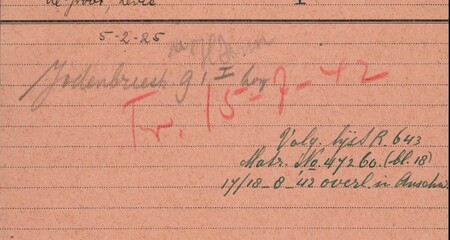 de Groot, Levie I
5-2-25
Jodenbreestr 91 I hog
Tr. 15-7-42
Volg. lijst R. 643
Matr. No. 47260. (bl. 18)
17/18-8-'42 overl. in Auschw.